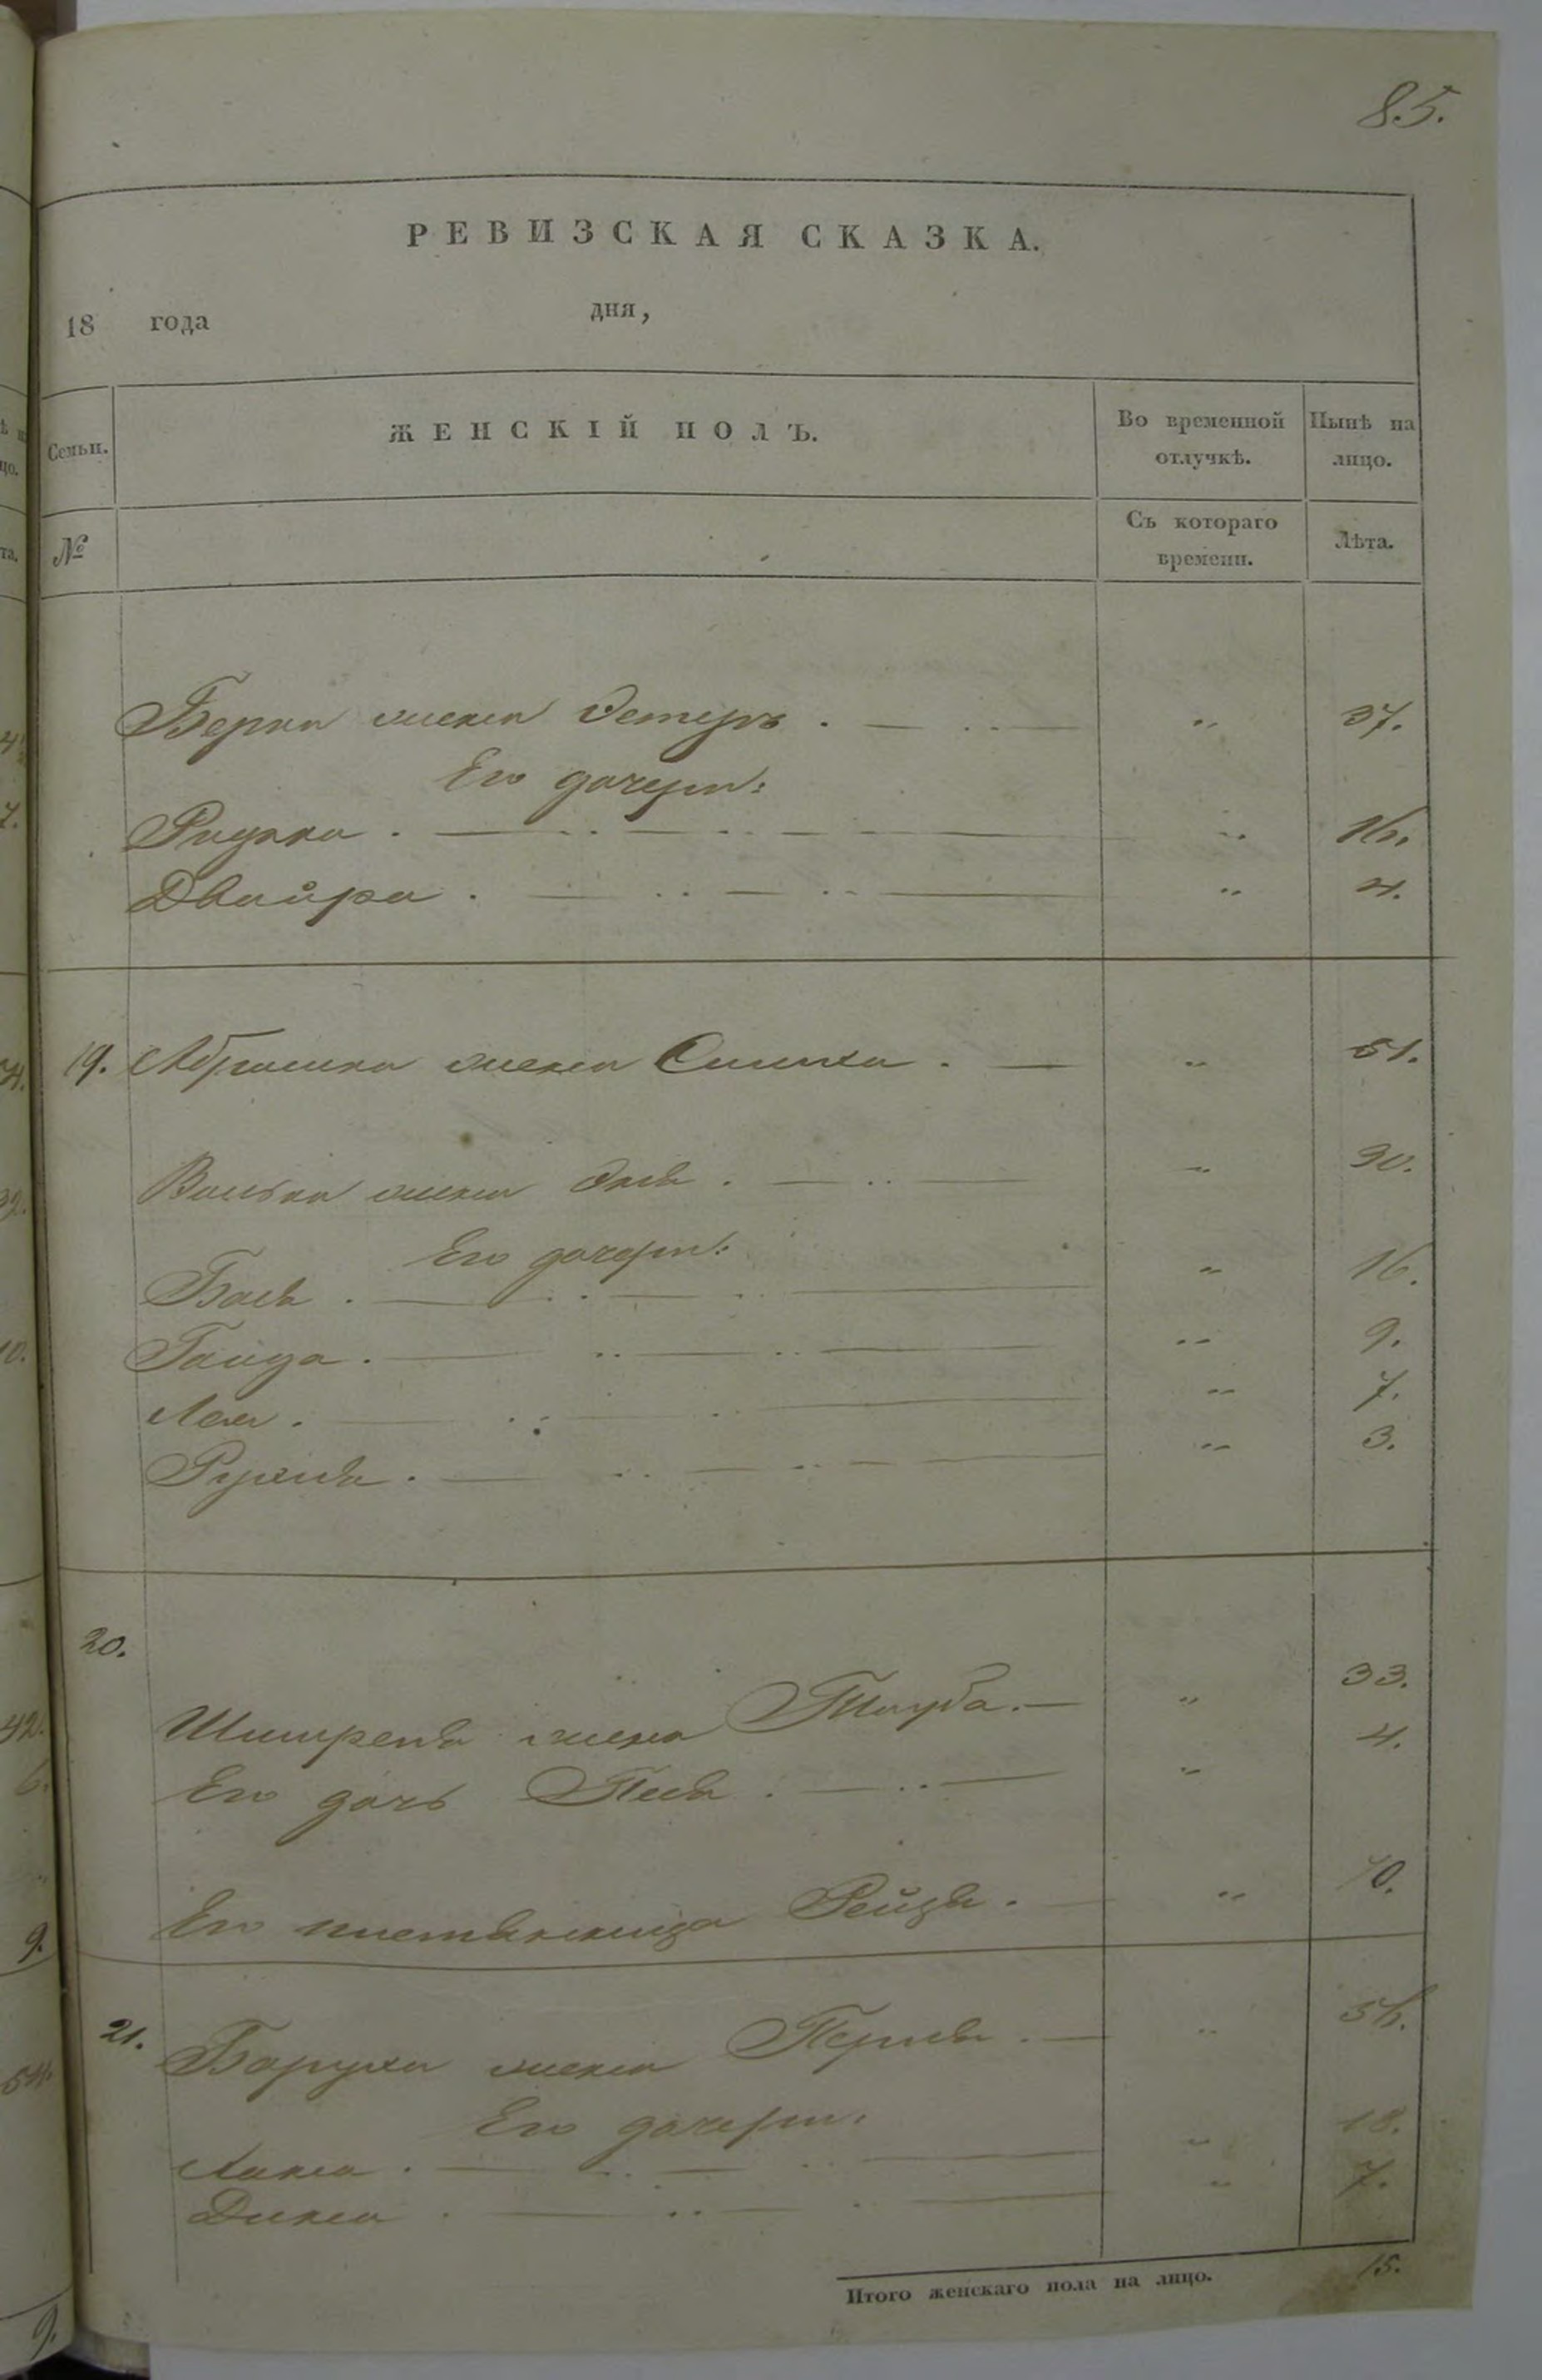 85.
РЕВИЗСКАЯ СКАЗКА.
18 года дня,
Семьи. ЖЕНСКІЙ ПОЛЪ. Во временной отлучкѣ. Нынѣ на лицо.
№ Съ котораго времени. Лѣта.
Берки жена Эстеръ . „ 37.
Его дочери:
„ 16.
Двайра . „ 4.
19. Абрамка жена „ 51.
жена „ 30.
Его дочери:
Бася . „ 16.
„ 9.
Лея . „ 7.
„ 3.
20.
жена Тауба . „ 33.
Его дочь Песя . „ 4.
Его племянница Рейзя . „ 10.
21. Боруха жена Перля . „ 56.
Его дочери:
Хана . „ 18.
Дина . „ 7.
Итого женскаго пола на лицо. 15.